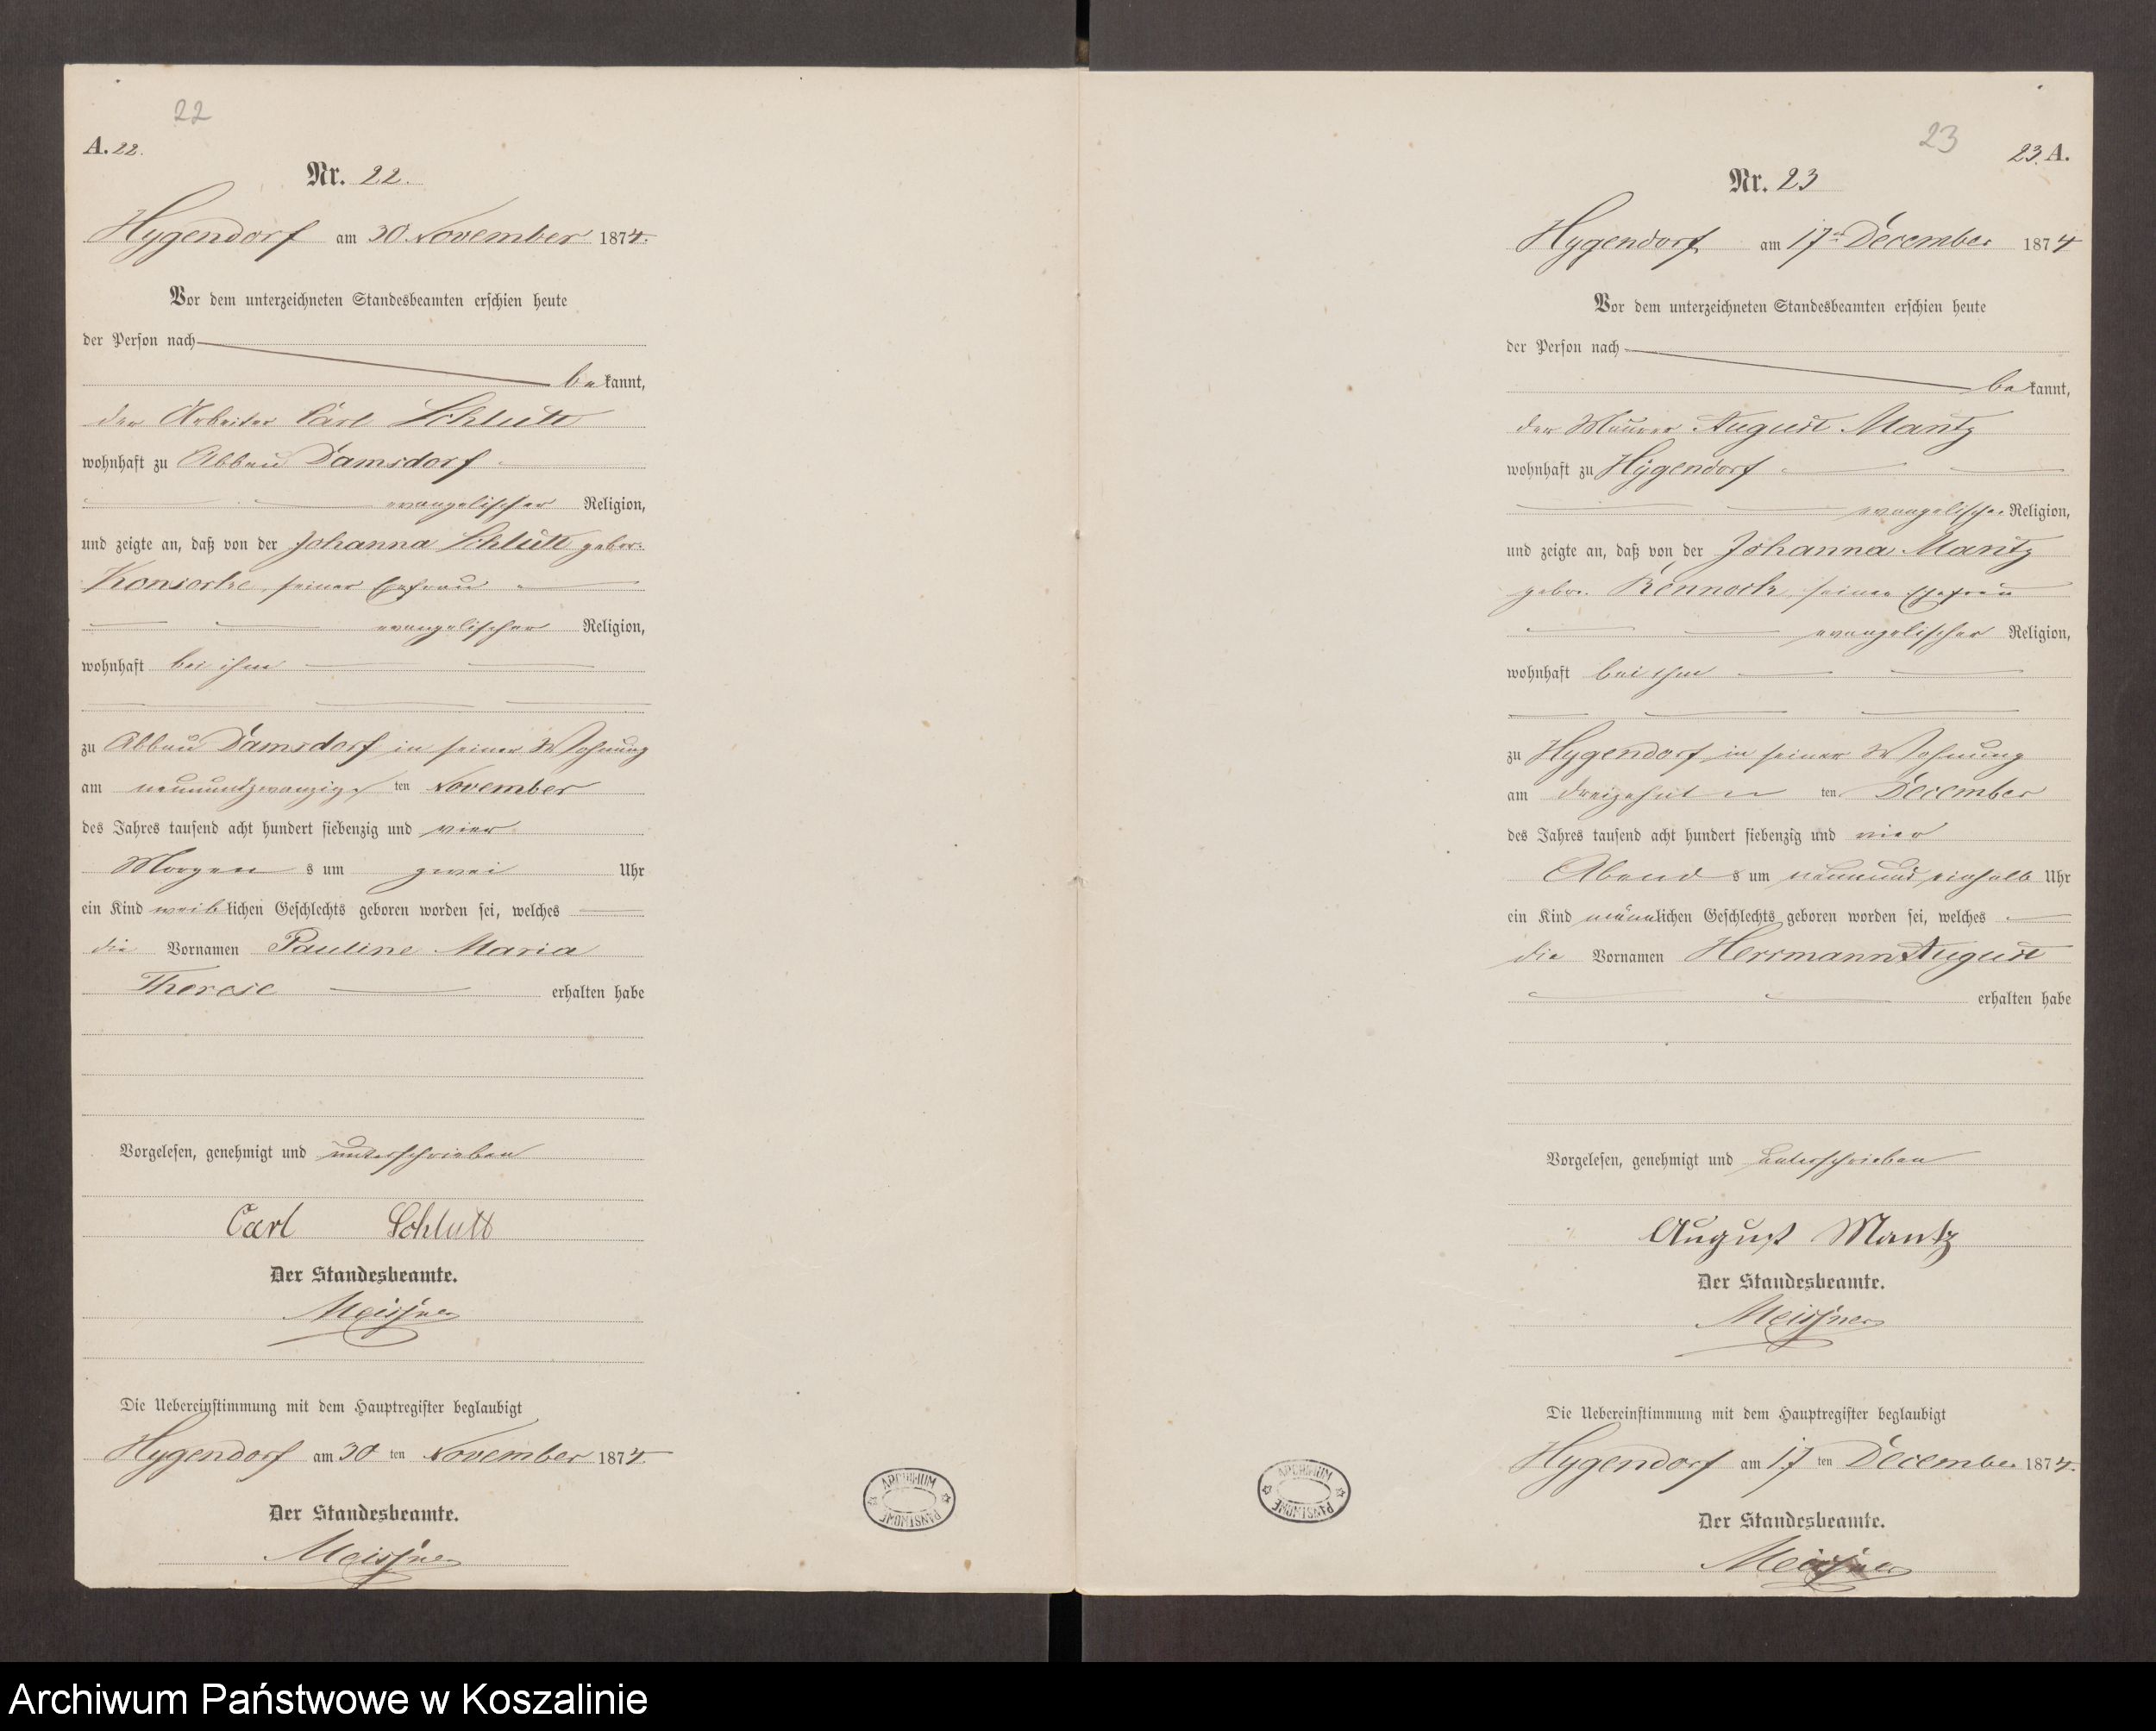 22
A. 22.
Nr. 22.
Hygendorf am 30. November 1874.
Vor dem unterzeichneten Standesbeamten erschien heute
der Person nach
bekannt,
der Arbeiter Carl Schlutt
wohnhaft zu Abbau Damsdorf
evangelischer Religion,
und zeigte an, daß von der Johanna Schlutt gebor.
Konsorke, seiner Ehefrau
evangelischer Religion,
wohnhaft bei ihm
zu Abbau Damsdorf in seiner Wohnung
am neunundzwanzigsten November
des Jahres tausend acht hundert siebenzig und vier
Morgens um zwei Uhr
ein Kind weiblichen Geschlechts geboren worden sei, welches
die Vornamen Pauline Maria
Therese erhalten habe
Vorgelesen, genehmigt und unterschrieben
Carl Schlutt
Der Standesbeamte.
Meissner
Die Uebereinstimmung mit dem Hauptregister beglaubigt
Hygendorf am 30 ten November 1874.
Der Standesbeamte.
Meissner
ARCHIWUM PAŃSTWOWE
23
23. A.
Nr. 23
Hygendorf am 17ten December 1874
Vor dem unterzeichneten Standesbeamten erschien heute
der Person nach
bekannt,
der Maurer August Mantz
wohnhaft zu Hygendorf
evangelischer Religion,
und zeigte an, daß von der Johanna Mantz
gebor. Rennock, seiner Ehefrau
evangelischer Religion,
wohnhaft bei ihm
zu Hygendorf in seiner Wohnung
am dreizehnten December
des Jahres tausend acht hundert siebenzig und vier
Abends um neun und einhalb Uhr
ein Kind männlichen Geschlechts geboren worden sei, welches
die Vornamen Herrmann August
erhalten habe
Vorgelesen, genehmigt und unterschrieben
August Mantz
Der Standesbeamte.
Meissner
Die Uebereinstimmung mit dem Hauptregister beglaubigt
Hygendorf am 17 ten December 1874.
Der Standesbeamte.
Meissner
ARCHIWUM PAŃSTWOWE
Archiwum Państwowe w Koszalinie